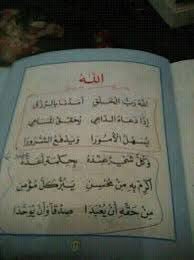 اللهُ
اللهُ رَبُّ الْخَلْقِ أَمَدَّنَا بِالرِّزْقِ
إِذَا دَعَاهُ الدَّاعِي يُحَقِّقُ الْمَسَاعِي
يُسَهِّلُ الْأُمُورَا وَيَدْفَعُ الشُّرُورَا
وَكُلُّ شَيْءٍ عِنْدَهُ بِحِكْمَةٍ أَعَدَّهُ
أَكْرِمْ بِهِ مِنْ مُحْسِنِ بِكُلِّ مُؤْمِنِ
مِنْ حَقِّهِ أَنْ يُعْبَدَا صِدْقًا وَأَنْ يُوَحَّدَا